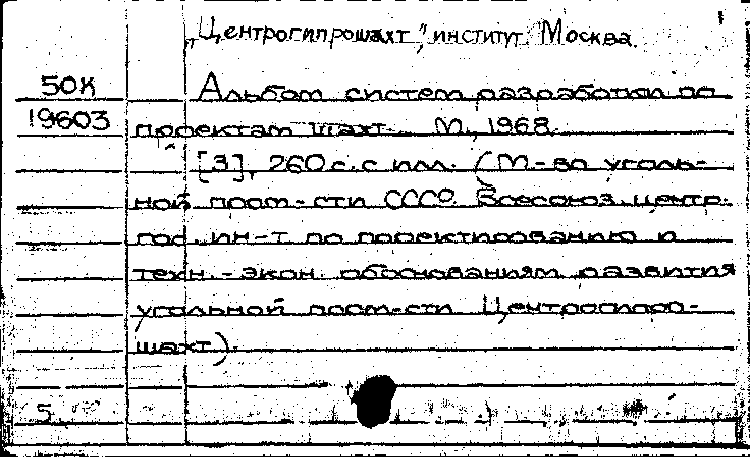 „Центрогипрошахт", институт. Москва.
50К Альбом систем разработки по
19603 проектам шахт. М., 1968.
[3], 260 с. с илл. (М-во уголь-
ной пром-сти СССР. Всесоюз. центр.
гос. ин-т по проектированию и
техн.-экон. обоснованиям развития
угольной пром-сти Центрогипро-
шахт).
5